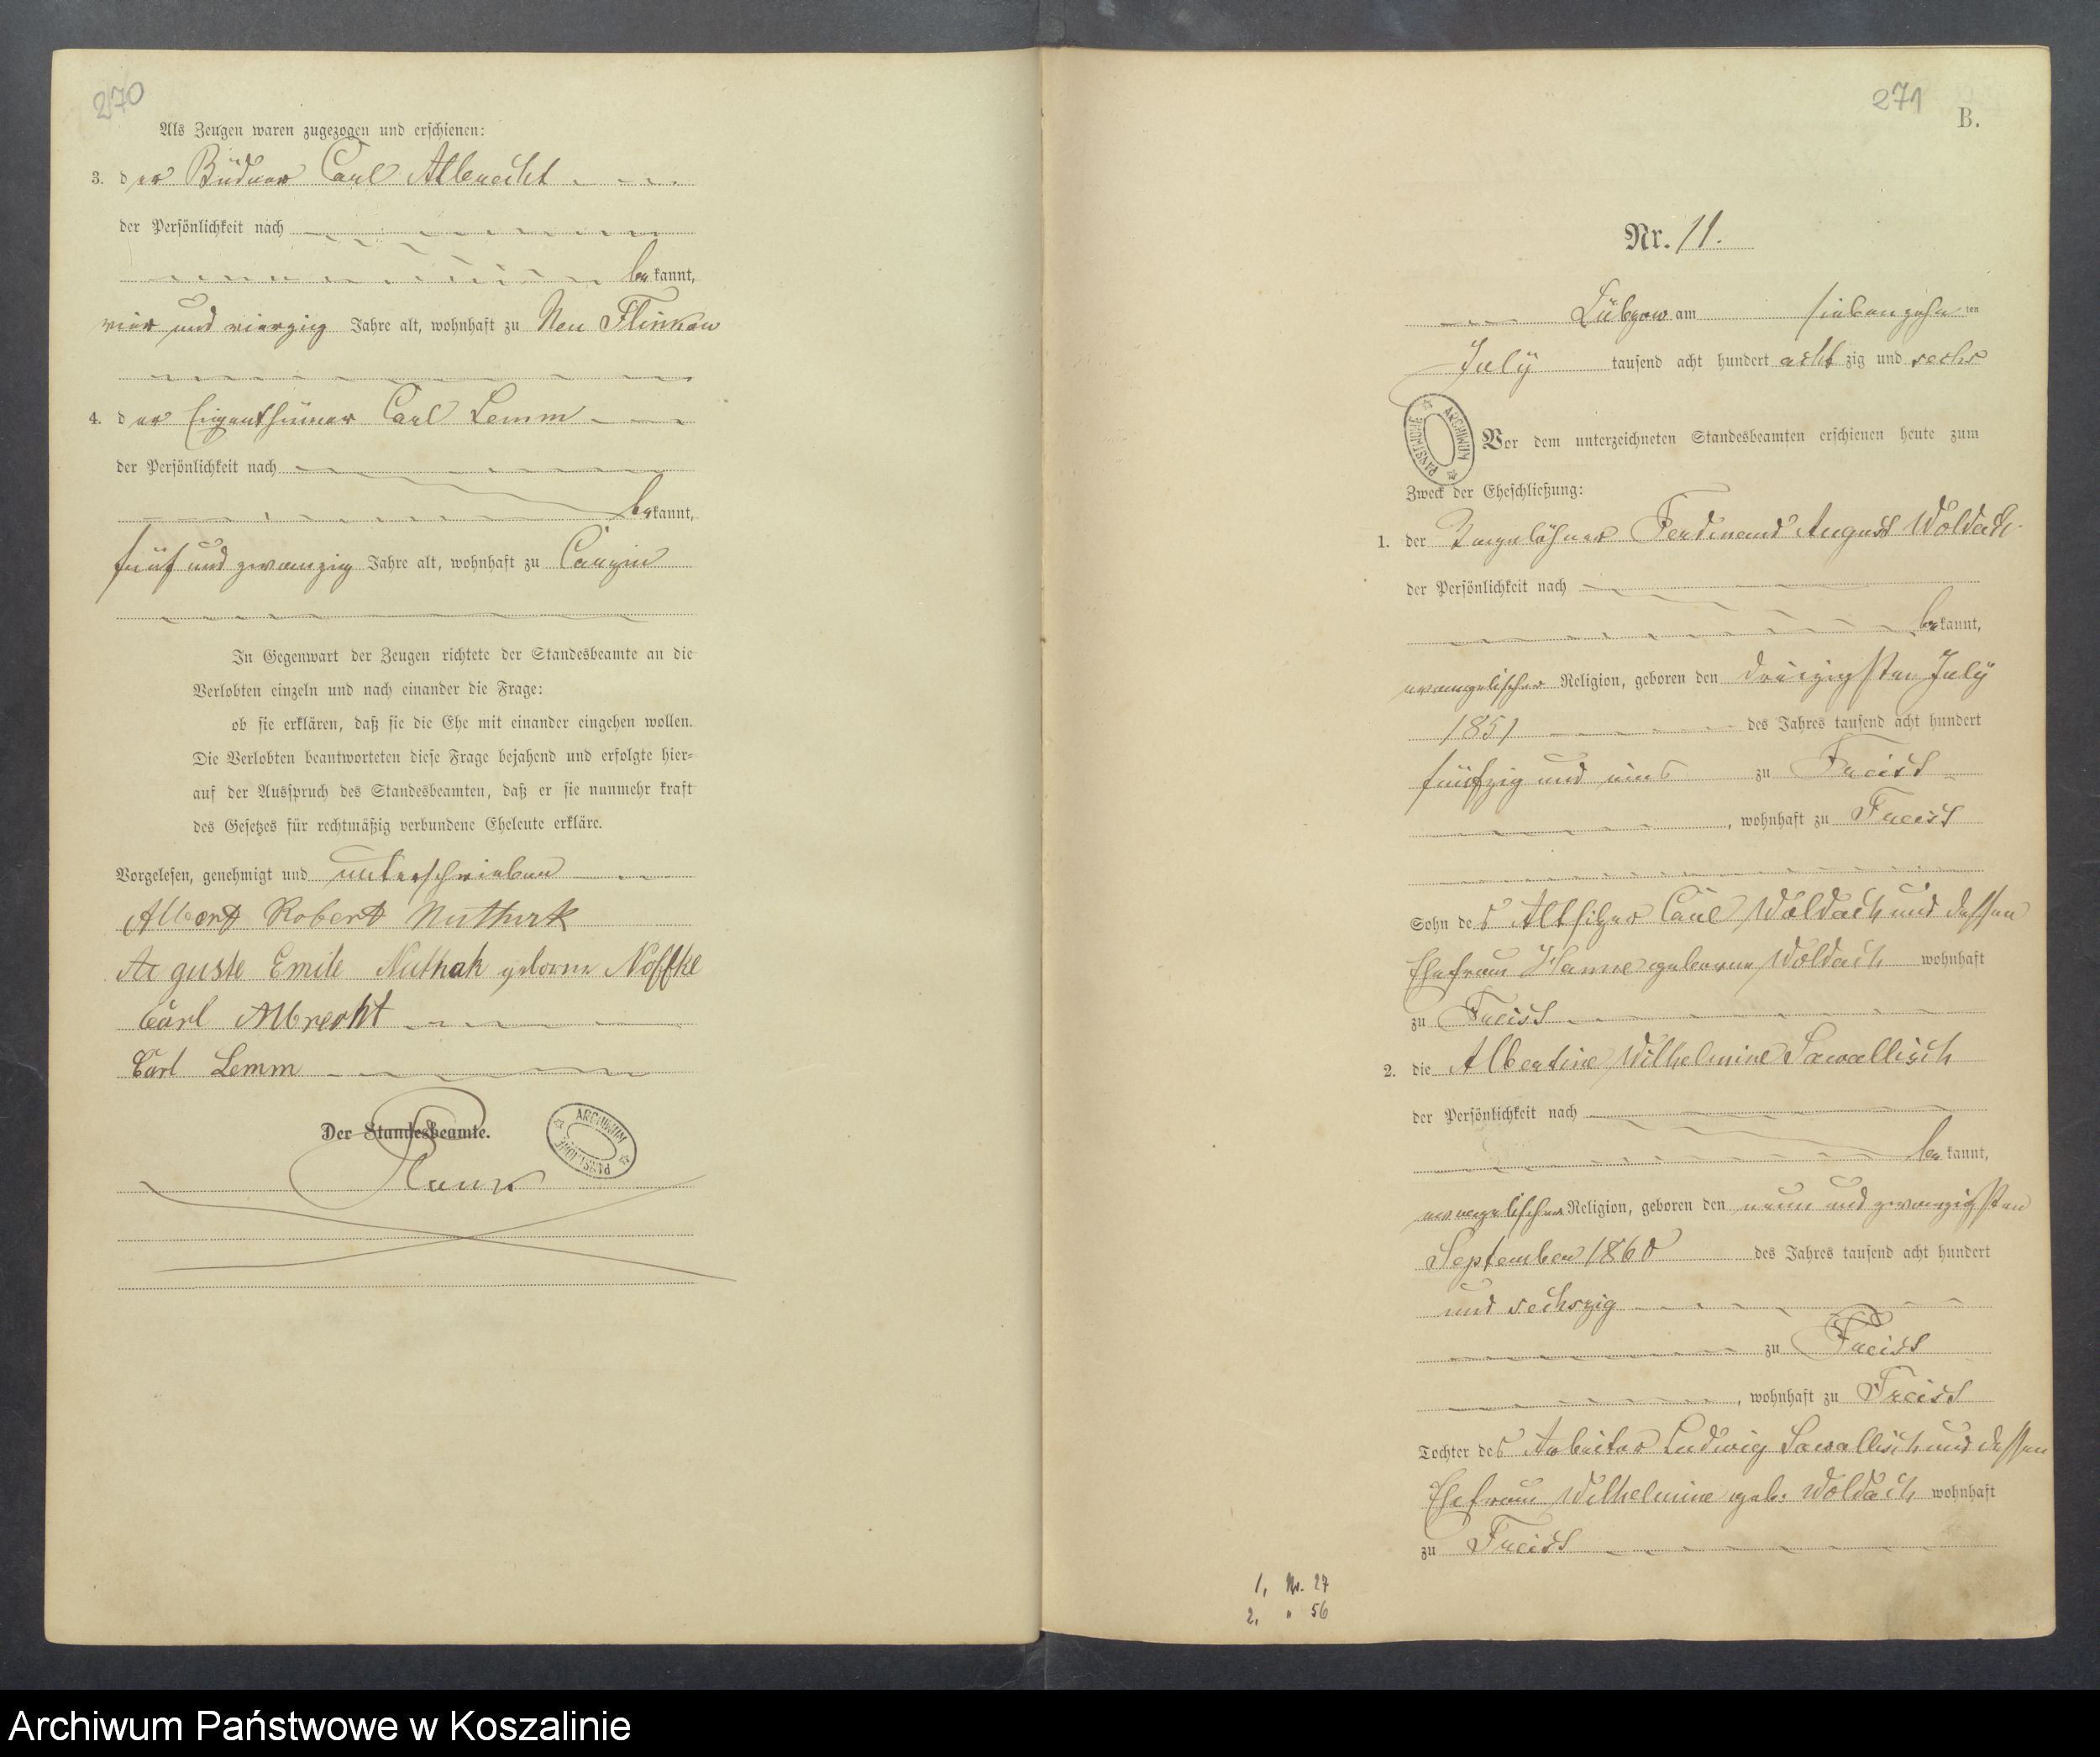 270
Als Zeugen waren zugezogen und erschienen:
3. der Büdner Carl Albrecht
der Persönlichkeit nach
bekannt,
vier und vierzig Jahre alt, wohnhaft zu Neu Flinkow
4. der Eigenthümer Carl Lemm
der Persönlichkeit nach
bekannt,
fünf und zwanzig Jahre alt, wohnhaft zu
In Gegenwart der Zeugen richtete der Standesbeamte an die
Verlobten einzeln und nach einander die Frage:
ob sie erklären, daß sie die Ehe mit einander eingehen wollen.
Die Verlobten beantworteten diese Frage bejahend und erfolgte hier-
auf der Ausspruch des Standesbeamten, daß er sie nunmehr kraft
des Gesetzes für rechtmäßig verbundene Eheleute erkläre.
Vorgelesen, genehmigt und unterschrieben
Albert Robert
Auguste Emile Nuthak geborne Noffke
Carl Albrecht
Carl Lemm
Der Standesbeamte.
ARCHIWUM PAŃSTWOWE
271
B.
Nr. 11.
Lübzow am siebenzehnten
July tausend acht hundert achtzig und sechs
ARCHIWUM PAŃSTWOWE
Vor dem unterzeichneten Standesbeamten erschienen heute zum
Zweck der Eheschließung:
1. der Tagelöhner Ferdinand August Woldach
der Persönlichkeit nach
bekannt,
evangelischer Religion, geboren den dreizigsten July
1851 des Jahres tausend acht hundert
fünfzig und eins zu Freist
, wohnhaft zu Freist
Sohn des Altsitzer Carl Woldach und dessen
Ehefrau Hanne geborene Woldach wohnhaft
zu Freist
2. die Albertine Wilhelmine Sawallisch
der Persönlichkeit nach
bekannt,
evangelischer Religion, geboren den neun und zwanzigsten
September 1860 des Jahres tausend acht hundert
und sechszig
zu Freist
, wohnhaft zu Freist
Tochter des Arbeiter Ludwig Sawallisch und dessen
Ehefrau Wilhelmine geb. Woldach wohnhaft
zu Freist
1, Nr. 27
2, " 56
Archiwum Państwowe w Koszalinie